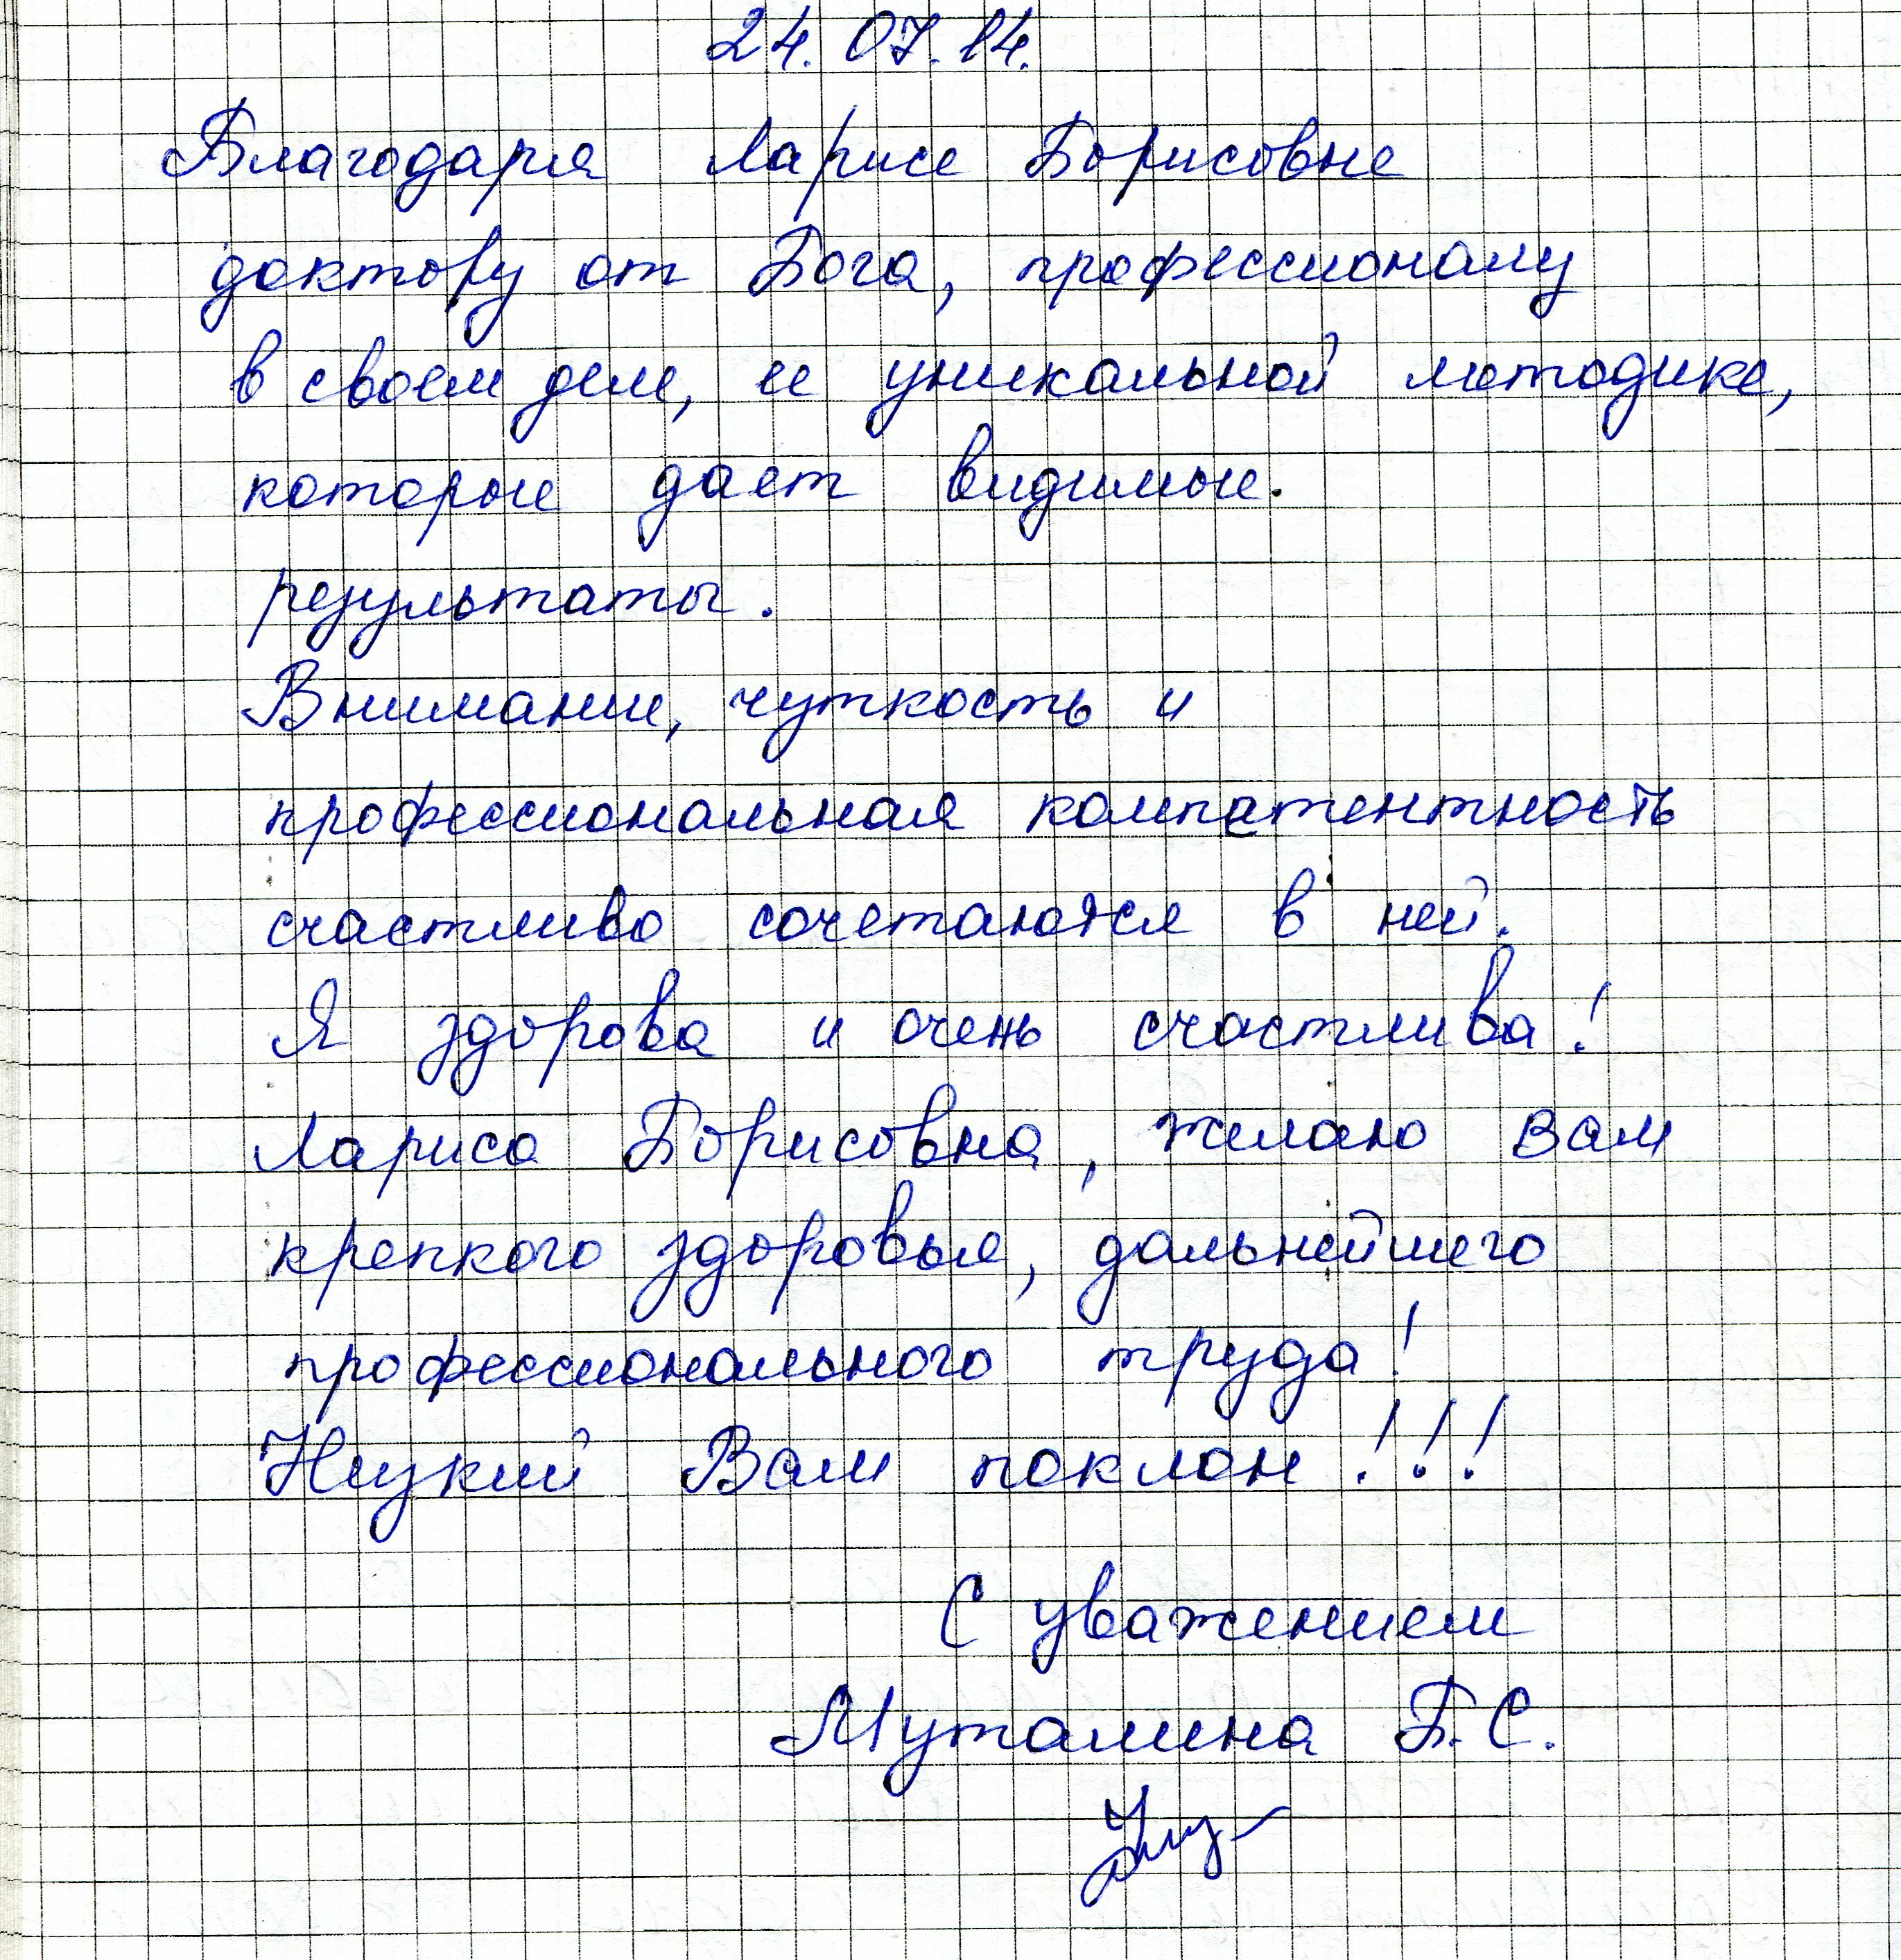 24.07.14.
Благодаря Ларисе Борисовне
доктору от Бога, профессионалу
в своем деле, ее уникальной методике,
которые дает видимые.
результаты.
Внимание, чуткость и
профессиональная компетентность
счастливо сочетаются в ней.
Я здорова и очень счастлива!
Лариса Борисовна, желаю Вам
крепкого здоровья, дальнейшего
профессионального труда!
Низкий Вам поклон!!!
С уважением
Муталина Б.С.